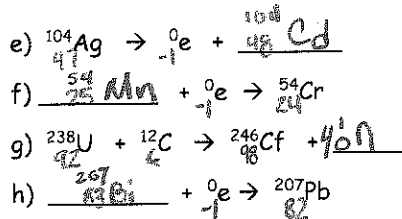 e) ¹⁰⁴₄₇Ag → ⁰₋₁e + ¹⁰⁴₄₈Cd
f) ⁵⁴₂₅Mn + ⁰₋₁e → ⁵⁴₂₄Cr
g) ²³⁸₉₂U + ¹²₆C → ²⁴⁶₉₈Cf + 4¹₀n
h) ²⁰⁷₈₃Bi + ⁰₋₁e → ²⁰⁷₈₂Pb